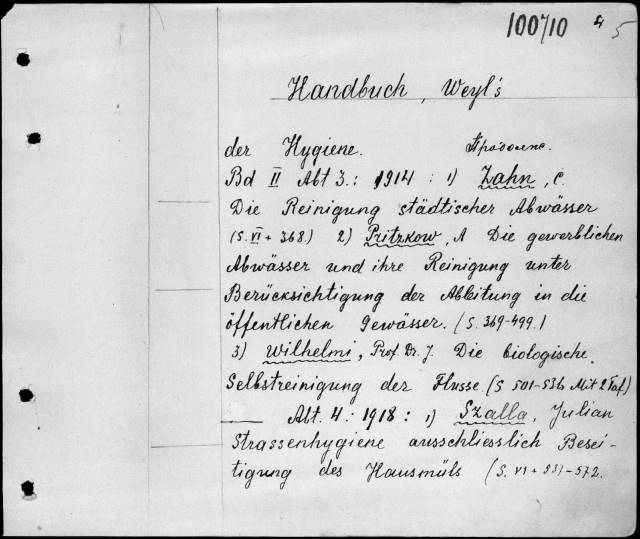 100710 4 5
Handbuch, Weyl's
der Hygiene. Продолж.
Bd II Abt 3.: 1914 : 1) Zahn, C.
Die Reinigung städtischer Abwässer
(S. VI + 368.) 2) Pritzkow, A Die gewerblichen
Abwässer und ihre Reinigung unter
Berücksichtigung der Ableitung in die
öffentlichen Gewässer. (S. 369-499.)
3) Wilhelmi, Prof. Dr. J. Die biologische
Selbstreinigung der Flusse. (S 501-536 Mit 2 Taf.)
Abt. 4.: 1918 : 1) Szalla, Julian
Strassenhygiene ausschliesslich Besei-
tigung des Hausmüls (S. VI + 537-572.